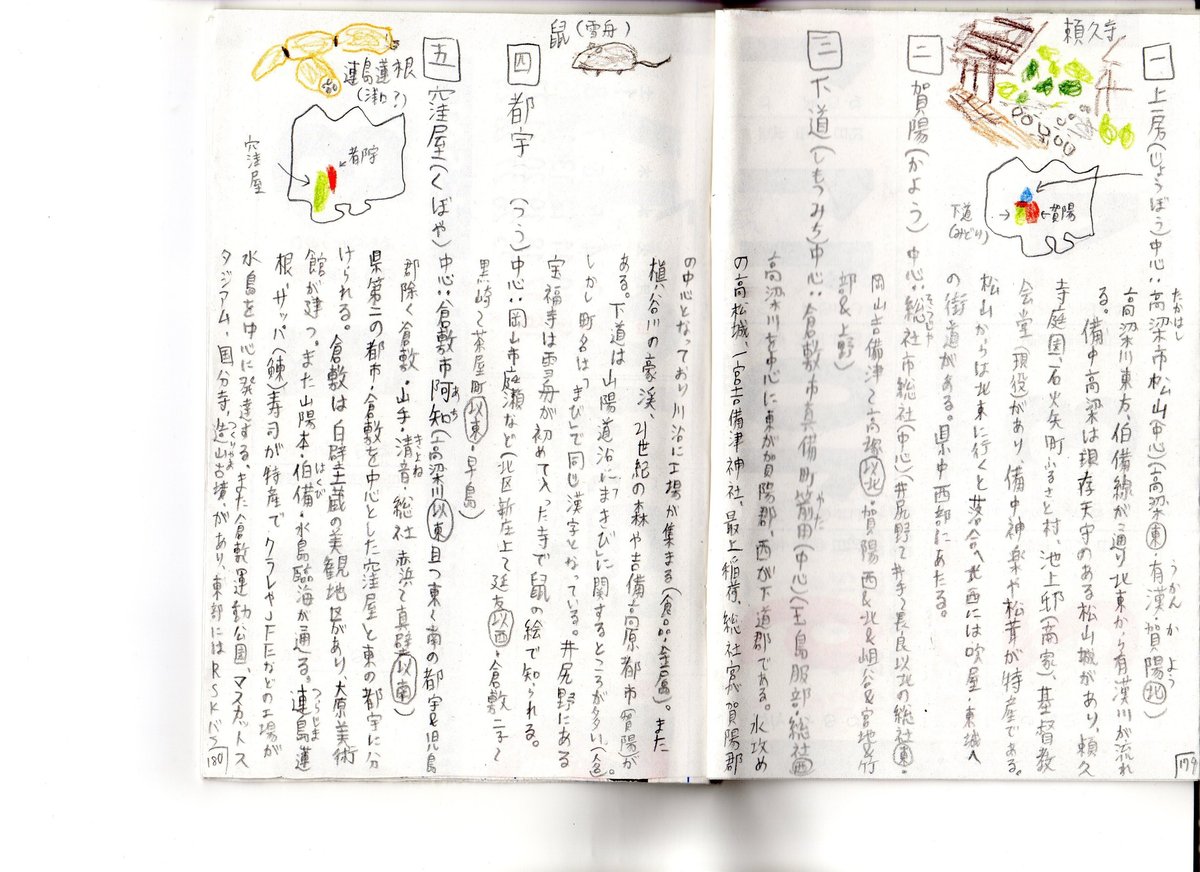 一 上房(じょうぼう)中心:高梁市松山(中心)(高梁東・有漢・賀陽北)
たかはし
うかん かよう
高梁川東方、伯備線が通り北東から有漢川が流れ
る。備中高梁は現存天守のある松山城があり、頼久
寺庭園、石火矢町ふるさと村、池上邸(商家)、基督教
会堂(現役)があり、備中神楽や松茸が特産である。
松山からは北東に行くと落合へ北西には吹屋・東城へ
の街道がある。県中西部にあたる。
頼久寺
下道(みどり)
賀陽
二 賀陽(かよう) 中心:総社市総社(中心)(井尻野て井手て黒良以北の総社東・
そうじゃ
岡山吉備津て高塚以北・賀陽西&北&岨谷&宮地&竹
部&上野)
三 下道(しもつみち)中心:倉敷市真備町箭田(中心)(玉島服部・総社西)
やた
高梁川を中心に東が賀陽郡、西が下道郡である。水攻め
の高松城、一宮吉備津神社、最上稲荷、総社宮が賀陽郡
179
の中心となっており川沿に工場が集まる(食品・金属)。また
槙谷川の豪渓、21世紀の森や吉備高原都市(賀陽)が
ある。下道は山陽道沿に「まきび」に関するところが多い(人名)。
しかし町名は「まび」で同じ漢字となっている。井尻野にある
宝福寺は雪舟が初めて入った寺で鼠の絵で知られる。
鼠(雪舟)
四 都宇(つう)中心:岡山市庭瀬など(北区新庄上て延友以西・倉敷二子て
黒崎て茶屋町以東・早島)
五 窪屋(くぼや)中心:倉敷市阿知(高梁川以東且つ東て南の都宇&児島
あち
郡除く倉敷・山手・清音・総社 赤浜て真壁以南)
きよね
県第二の都市・倉敷を中心とした窪屋と東の都宇に分
けられる。倉敷は白壁土蔵の美観地区があり、大原美術
館が建つ。また山陽本・伯備・水島臨海が通る。連島蓮
はくび
つらじま
根、サッパ(鰊)寿司が特産でクラレやJFEなどの工場が
水島を中心に発達する。また倉敷運動公園、マスカットス
タジアム、国分寺、造山古墳、があり、東部にはRSKバラ
つくりやま
連島蓮根
都宇
窪屋
180